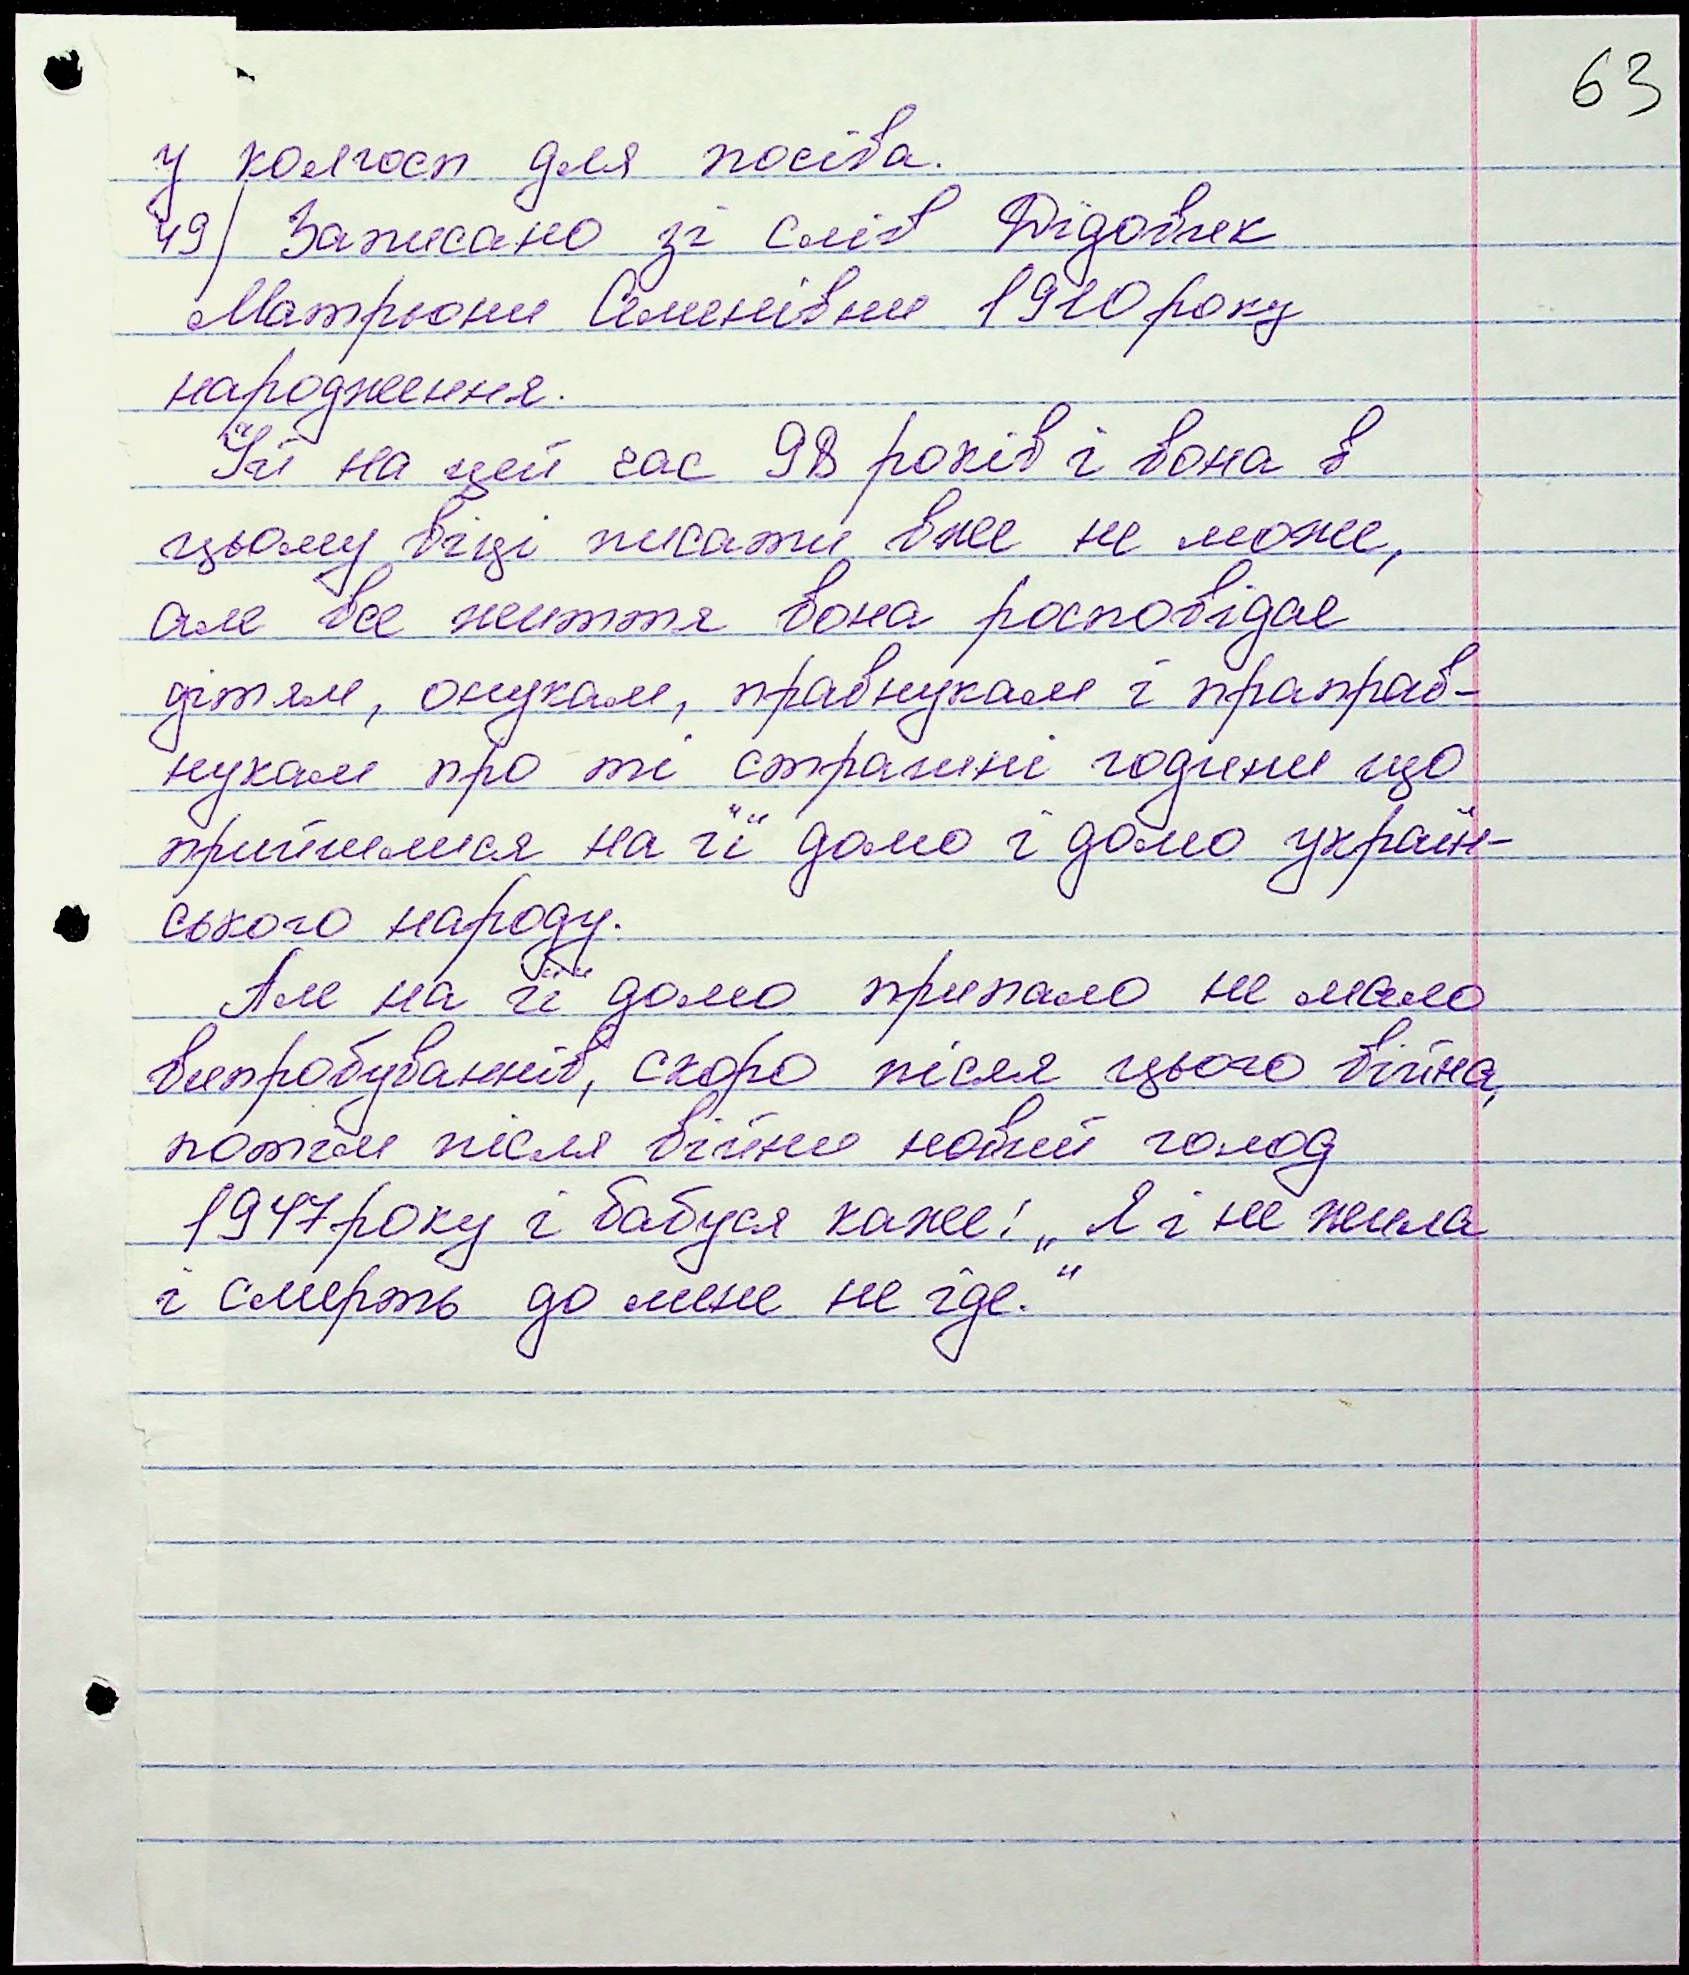 63
у колгосп для посіва.
49/ Записано зі слів Дідовик
Матрьони Семенівни 1910 року
народження.
Їй на цей час 98 років і вона в
цьому віці писати вже не може,
але все життя вона росповідає
дітям, онукам, правнукам і праправ-
нукам про ті страшні години що
прийшлися на її долю і долю україн-
ського народу.
Але на її долю припало не мало
випробуваннів, скоро після цього війна,
потім після війни новий голод
1947 року і бабуся каже: „Я і не жила
і смерть до мене не їде.“